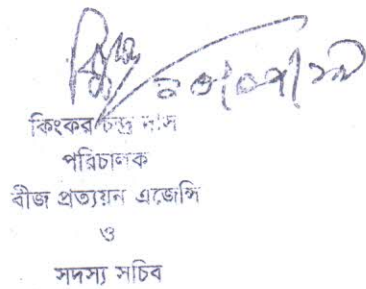 কিংকর চন্দ্র দাস
পরিচালক
বীজ প্রত্যয়ন এজেন্সি
ও
সদস্য সচিব